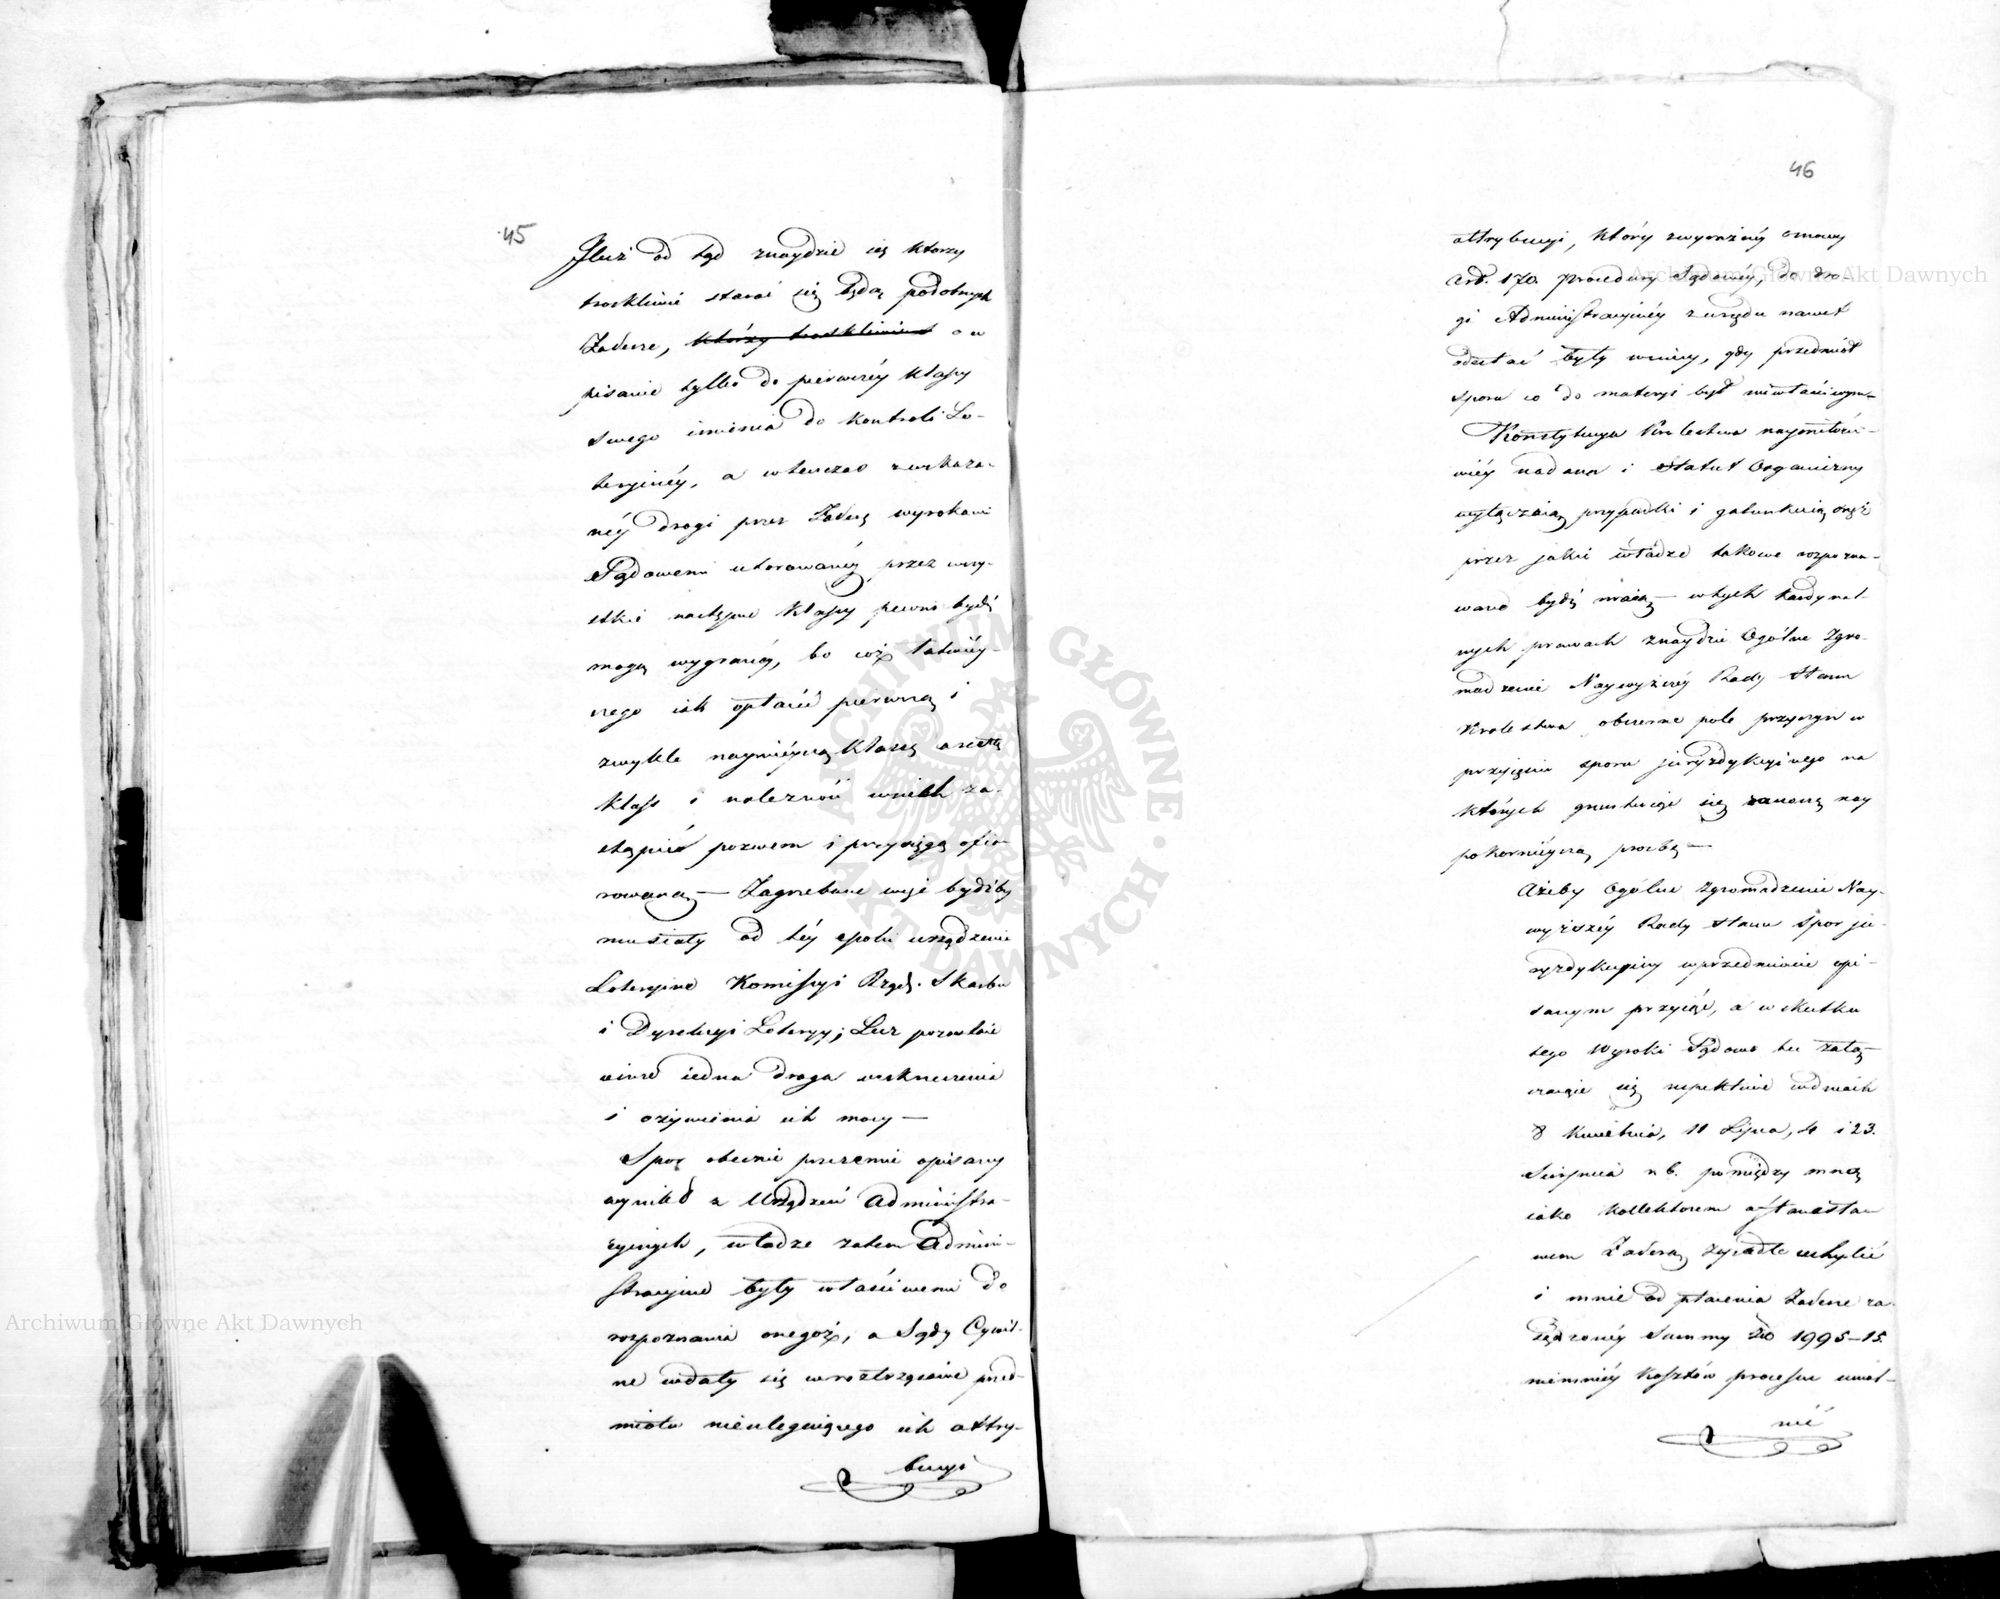 45
Iluż od tąd znaydzie się ktorzy
troskliwie starać się będą podobnych
Zaderze, którzy troskliwie o w
pisanie tylko do pierwszéy klassy
swego imienia do kontroli Lo-
teryinéy, a wtenczas wskaza-
néy drogi przez Zaderę wyrokami
Sądowemi utorowanéy przez wszy-
stkie następne klassy pewni bydź
mogą wygranéy, bo coż łatwiéy-
szego iak opłacić pierwszą i
zwykle naymnieyszą klassę a resztę
klass i należność wnich za-
stąpić pozwem i przysięgą ofia-
rowaną — Zagrzebane więc bydźby
musiały od téy epoki urządzenia
Loteryine Komissyi Rząd. Skarbu
i Dyrekcyi Loteryy; Lecz pozostaie
ieszcze iedna droga wskrzeszenia
i ożywienia ich mocy —
Spor obecnie przezemnie opisany
wynikł z Urządzeń Administra-
cyinych, władze zatem Admini-
stracyine były właściwemi do
rozpoznania onegoż, a Sądy Cywil-
ne wdały się w roztrząsanie przed-
miotu nieulegaiącego ich attry-
bucyi
46
attrybucyi, który zwyraźnéy osnowy
Art. 170. Procedury Sądowéy, do dro-
gi Administracyinéy zurzędu nawet
odesłać były winny, gdy przedmiot
sporu co do materyi był niewłaściwym —
Konstytucya Krolestwa naymiłości-
wiéy nadana i Statut Organiczny
wyłączaią przypadki i gatunkuią oraz
przez jakie władze takowe rozpozna-
wane bydź maią — wtych kardynal-
nych prawach znaydzie Ogólne Zgro-
madzenie Naywyższéy Rady Stanu
Krolestwa obszerne pole przyczyn w
przyięciu sporu juryzdykcyinego na
których gruntuiąc się zanoszę nay
pokornieyszą prośbę —
Ażeby Ogólne Zgromadzenie Nay-
wyższéy Rady Stanu Spor ju-
ryzdykcyiny wprzedmiocie opi-
sanym przyięło, a w skutku
tego Wyroki Sądowe tu załą-
czaiące się respektive wdniach
8 Kwietnia, 11 Lipca, 4 i 23.
Sierpnia r. b. pomiędzy mną
iako Kollektorem a Stanisła-
wem Zaderą zapadłe uchylić
i mnie od płacenia Zaderze za-
sądzonéy Summy Złp 1995-15.
niemniéy kosztów processu uwol-
nić
Archiwum Główne Akt Dawnych
Archiwum Główne Akt Dawnych
ARCHIWUM GŁÓWNE AKT DAWNYCH